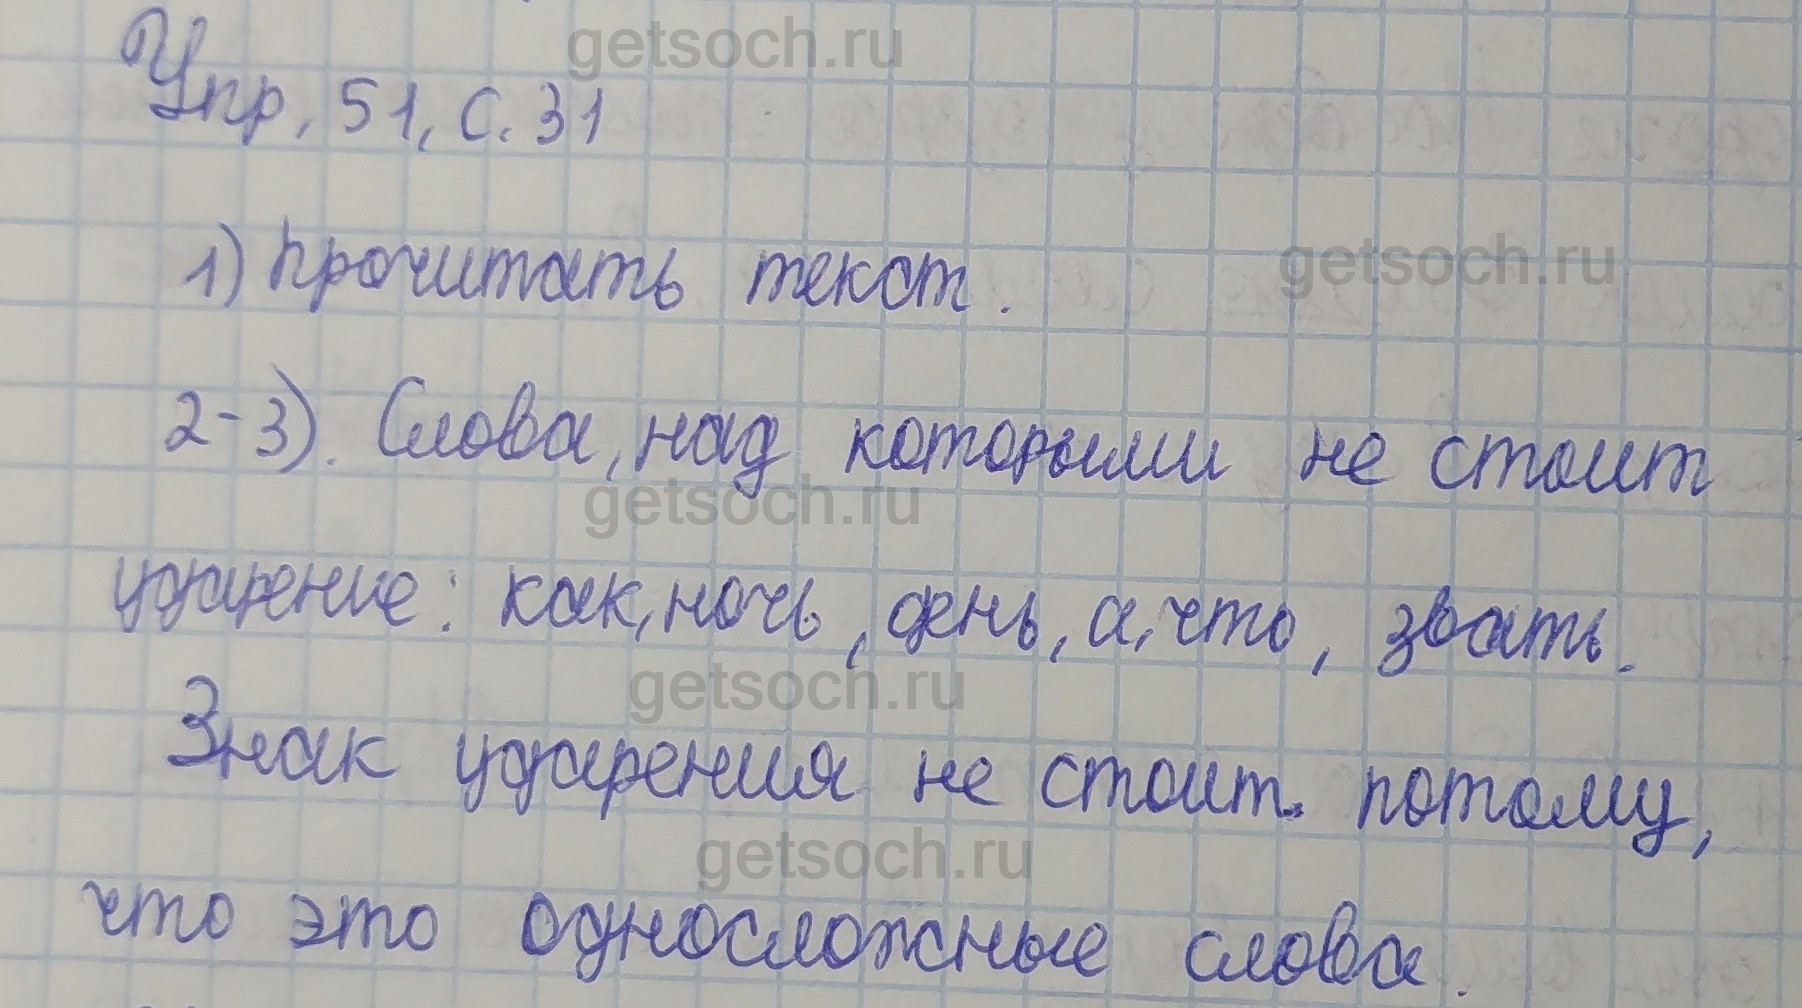 getsoch.ru
Упр. 51, с. 31
1) Прочитать текст.
getsoch.ru
2-3). Слова, над которыми не стоит
getsoch.ru
ударение: как, ночь, день, а, что, звать.
getsoch.ru
Знак ударения не стоит потому,
getsoch.ru
что это односложные слова.